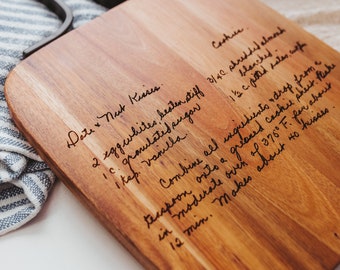 Date & Nut Kisses
Cookies
2 egg whites beaten stiff
1 c granulated sugar
1 tsp. vanilla
3/4 c shredded almonds
blanched
1 1/2 c pitted dates, cut
Combine all ingredients & drop from a
teaspoon onto a greased cookie sheet. Bake
in moderate oven of 370° F. for about
12 min. Makes about 40 kisses.